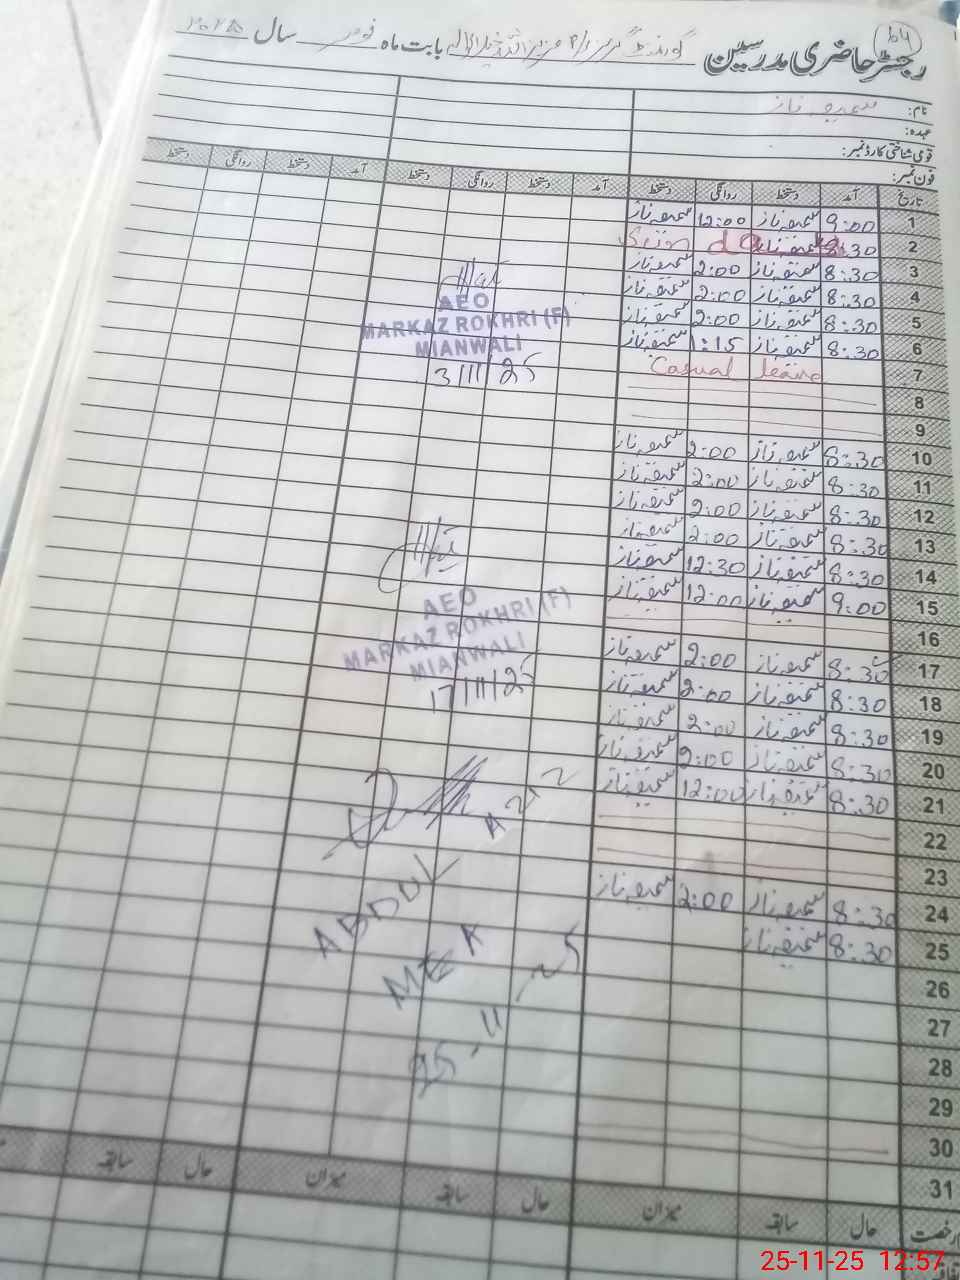 64
رجسٹر حاضری مدرسین گورنمنٹ گرلز بابت ماہ نومبر سال ۲۰۲۵
نام: سمیعہ ناز
عہدہ:
قومی شناختی کارڈ نمبر:
فون نمبر:
تاریخ آمد دستخط روانگی دستخط آمد دستخط روانگی دستخط آمد دستخط روانگی دستخط
1 9:00 سمیعہ ناز 12:00 سمیعہ ناز
2 :30
3 8:30 سمیعہ ناز 2:00 سمیعہ ناز
4 8:30 سمیعہ ناز 2:00 سمیعہ ناز
5 8:30 سمیعہ ناز 2:00 سمیعہ ناز
6 8:30 سمیعہ ناز 1:15 سمیعہ ناز
7 Casual leave
8
9
10 8:30 سمیعہ ناز 2:00 سمیعہ ناز
11 8:30 سمیعہ ناز 2:00 سمیعہ ناز
12 8:30 سمیعہ ناز 2:00 سمیعہ ناز
13 8:30 سمیعہ ناز 2:00 سمیعہ ناز
14 8:30 سمیعہ ناز 12:30 سمیعہ ناز
15 9:00 سمیعہ ناز 12:00 سمیعہ ناز
16
17 8:30 سمیعہ ناز 2:00 سمیعہ ناز
18 8:30 سمیعہ ناز 2:00 سمیعہ ناز
19 8:30 سمیعہ ناز 2:00 سمیعہ ناز
20 8:30 سمیعہ ناز 2:00 سمیعہ ناز
21 8:30 سمیعہ ناز 12:00 سمیعہ ناز
22
23
24 8:30 سمیعہ ناز 2:00 سمیعہ ناز
25 8:30 سمیعہ ناز
26
27
28
29
30
31
رخصت حال سابقہ میزان حال سابقہ میزان حال سابقہ
AEO
MARKAZ ROKHRI (F)
MIANWALI
3/11/25
AEO
MARKAZ ROKHRI (F)
MIANWALI
17/11/25
ABDUL AZIZ
25-11-25 12:57